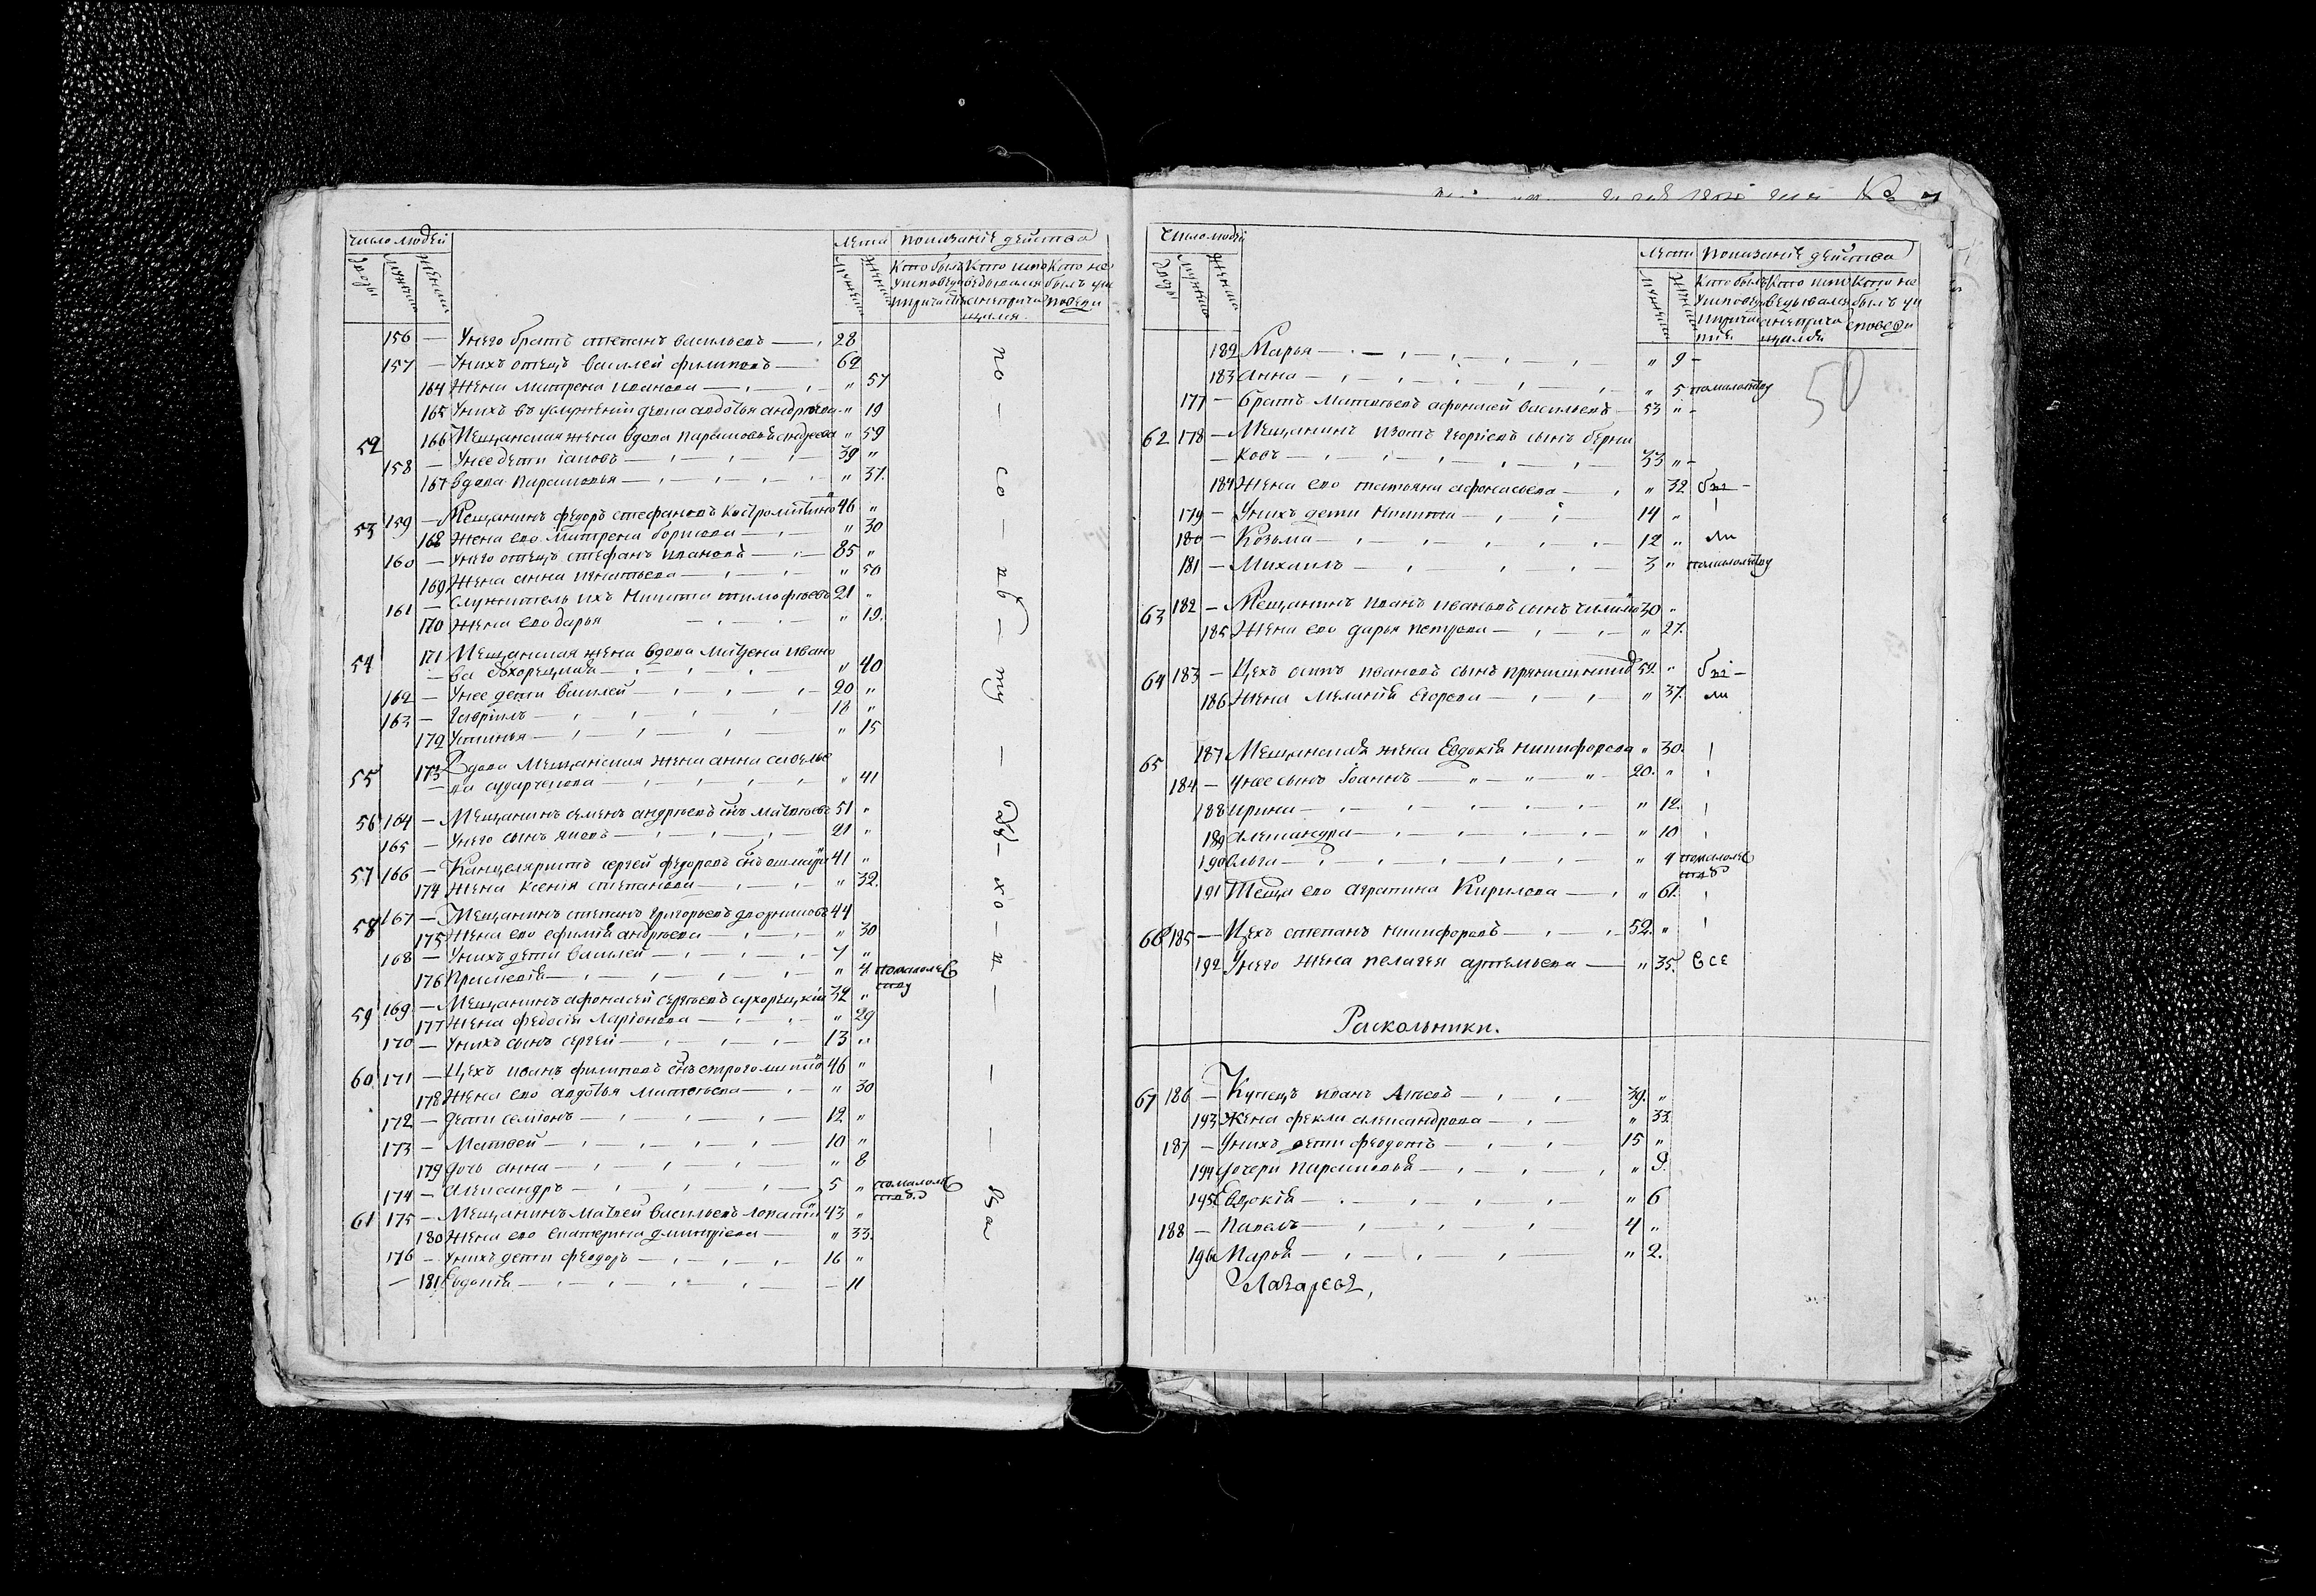 число людей
лета показанiе действа
дворы мужеска женска
мужеска женска
Кто былъ у исповеди и причастiя
Кто исповедывался а не причащался
Кто не былъ у исповеди
156 — У него братъ степанъ васильевъ — 28
157 — У нихъ отецъ василей филиповъ — 62
164 Жена матрена иванова — " 57
165 У нихъ въ услуженiи девка авдотья андреева " 19
52 166 Мещанская жена вдова парасковья андреева " 59
158 — У нее дети iаковъ — 39 "
167 вдова парасковья — " 37.
53 159 — Мещанинъ федоръ стефановъ 46 "
168 Жена его матрена борисова — " 30
160 — У него отецъ стефанъ ивановъ — 85 "
169 Жена анна игнатьева — " 50
161 — служитель ихъ никита тимофеевъ 21 "
170 Жена его дарья — " 19.
54 171 Мещанская жена вдова матрена ивано
— ва — " 40
162 — У нее дети василей — 20 "
163 — гаврiилъ — 18 "
172 устинья — " 15
55 173 Вдова Мещанская жена анна савелье
— ва сударчикова — " 41
56 164 — Мещанинъ семенъ андреевъ сiнъ 51 "
165 — У него сынъ яковъ — 21 "
57 166 — Канцеляристъ сергей федоровъ сiнъ 41 "
174 Жена ксенiя степанова — " 32.
58 167 — Мещанинъ степанъ григорьевъ дворниковъ 44
175 Жена его ефимiя андреева — " 30
168 — У нихъ дети василей — 7 "
176 Прасковiя — " 4 помалолетству
59 169 — Мещанинъ афонасей сергеевъ сухорецкiй 32 "
177 Жена федосiя Ларiонова — " 29
170 — У нихъ сынъ сергей — 13 "
60 171 — Цехъ иванъ филиповъ сiнъ 46 "
178 Жена его авдотья матвеева — " 30
172 — дети семiонъ — 12 "
173 — Матвей — 10 "
179 дочь анна — " 8
174 — александръ — 5 " помалолетств.
61 175 — Мещанинъ матвей васильевъ 43 "
180 Жена его екатерина дмитрiева — " 33.
176 — У нихъ дети феодоръ — 16 "
— 181 Евдокiя — — 11
по — со — — ту — — — хо — — — — ва
число людей
лета показанiе действа
дворы мужеска женска
мужеска женска
Кто былъ у исповеди и причастiя
Кто исповедывался а не причащался
Кто не былъ у исповеди
50
182 Марья — " 9 —
183 анна — " 5 помалолетству
177 — братъ Матвеевъ афонасей васильевъ — 53 " —
62 178 — Мещанинъ изотъ георгiевъ сынъ берни
— ковъ — 33 " —
184 Жена его татьяна афонасьева — " 32 бы —
179 — У нихъ дети никита — 14 "
180 — Козьма — 12 " ли
181 — Михаилъ — 3 " помалолетству
63 182 — Мещанинъ иванъ ивановъ сынъ 30 "
185 Жена его дарья петрова — " 27.
64 183 — Цехъ ивановъ сынъ 52. " бы —
186 Жена меланiя егорова — " 37. ли
65 187 Мещанская жена Евдокiя никифорова " 30.
184 — У нее сынъ Iоаннъ — 20. "
188 ирина — " 12.
189 александра — " 10
190 ольга — " 4 помалолетств
191 Теща его аграпина Кирилова — " 61.
66 185 — Цехъ степанъ никифоровъ — 52. "
192 У него жена пелагея артемьева — " 35. все
Раскольники.
67 186 — Купецъ иванъ — 39. "
193 Жена фекла александрова — " 33.
187 — У нихъ дети феодотъ — 15 "
194 дочери парасковья — " 9.
195 Евдокiя — " 6
188 — Павелъ — 4 "
196 Марья — " 2.
Лазаревъ,